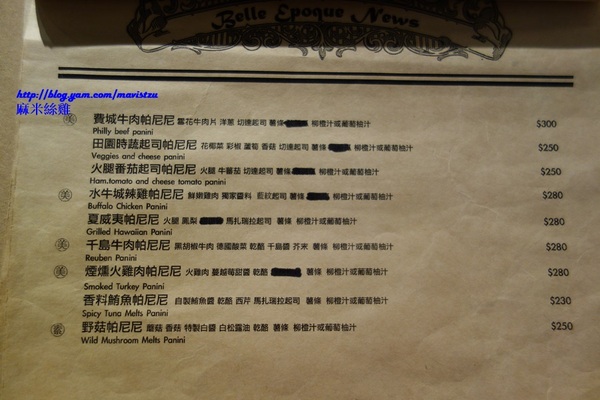 Belle Epoque News
http://blog.yam.com/mavistzu
麻米絲雞
美 費城牛肉帕尼尼 雪花牛肉片 洋蔥 切達起司 薯條 柳橙汁或葡萄柚汁 $300
Philly beef panini
田園時蔬起司帕尼尼 花椰菜 彩椒 蘆筍 香菇 切達起司 薯條 柳橙汁或葡萄柚汁 $250
Veggies and cheese panini
火腿番茄起司帕尼尼 火腿 牛蕃茄 切達起司 薯條 柳橙汁或葡萄柚汁 $250
Ham,tomato and cheese tomato panini
美 水牛城辣雞帕尼尼 鮮嫩雞肉 獨家醬料 藍紋起司 薯條 柳橙汁或葡萄柚汁 $280
Buffalo Chicken Panini
夏威夷帕尼尼 火腿 鳳梨 馬扎瑞拉起司 薯條 柳橙汁或葡萄柚汁 $280
Grilled Hawaiian Panini
美 千島牛肉帕尼尼 黑胡椒牛肉 德國酸菜 乾酪 千島醬 芥米 薯條 柳橙汁或葡萄柚汁 $280
Reuben Panini
美 煙燻火雞肉帕尼尼 火雞肉 蔓越莓甜醬 乾酪 薯條 柳橙汁或葡萄柚汁 $280
Smoked Turkey Panini
香料鮪魚帕尼尼 自製鮪魚醬 乾酪 西芹 馬扎瑞拉起司 薯條 柳橙汁或葡萄柚汁 $230
Spicy Tuna Melts Panini
野菇帕尼尼 蘑菇 香菇 特製白醬 白松露油 乾酪 薯條 柳橙汁或葡萄柚汁 $250
Wild Mushroom Melts Panini